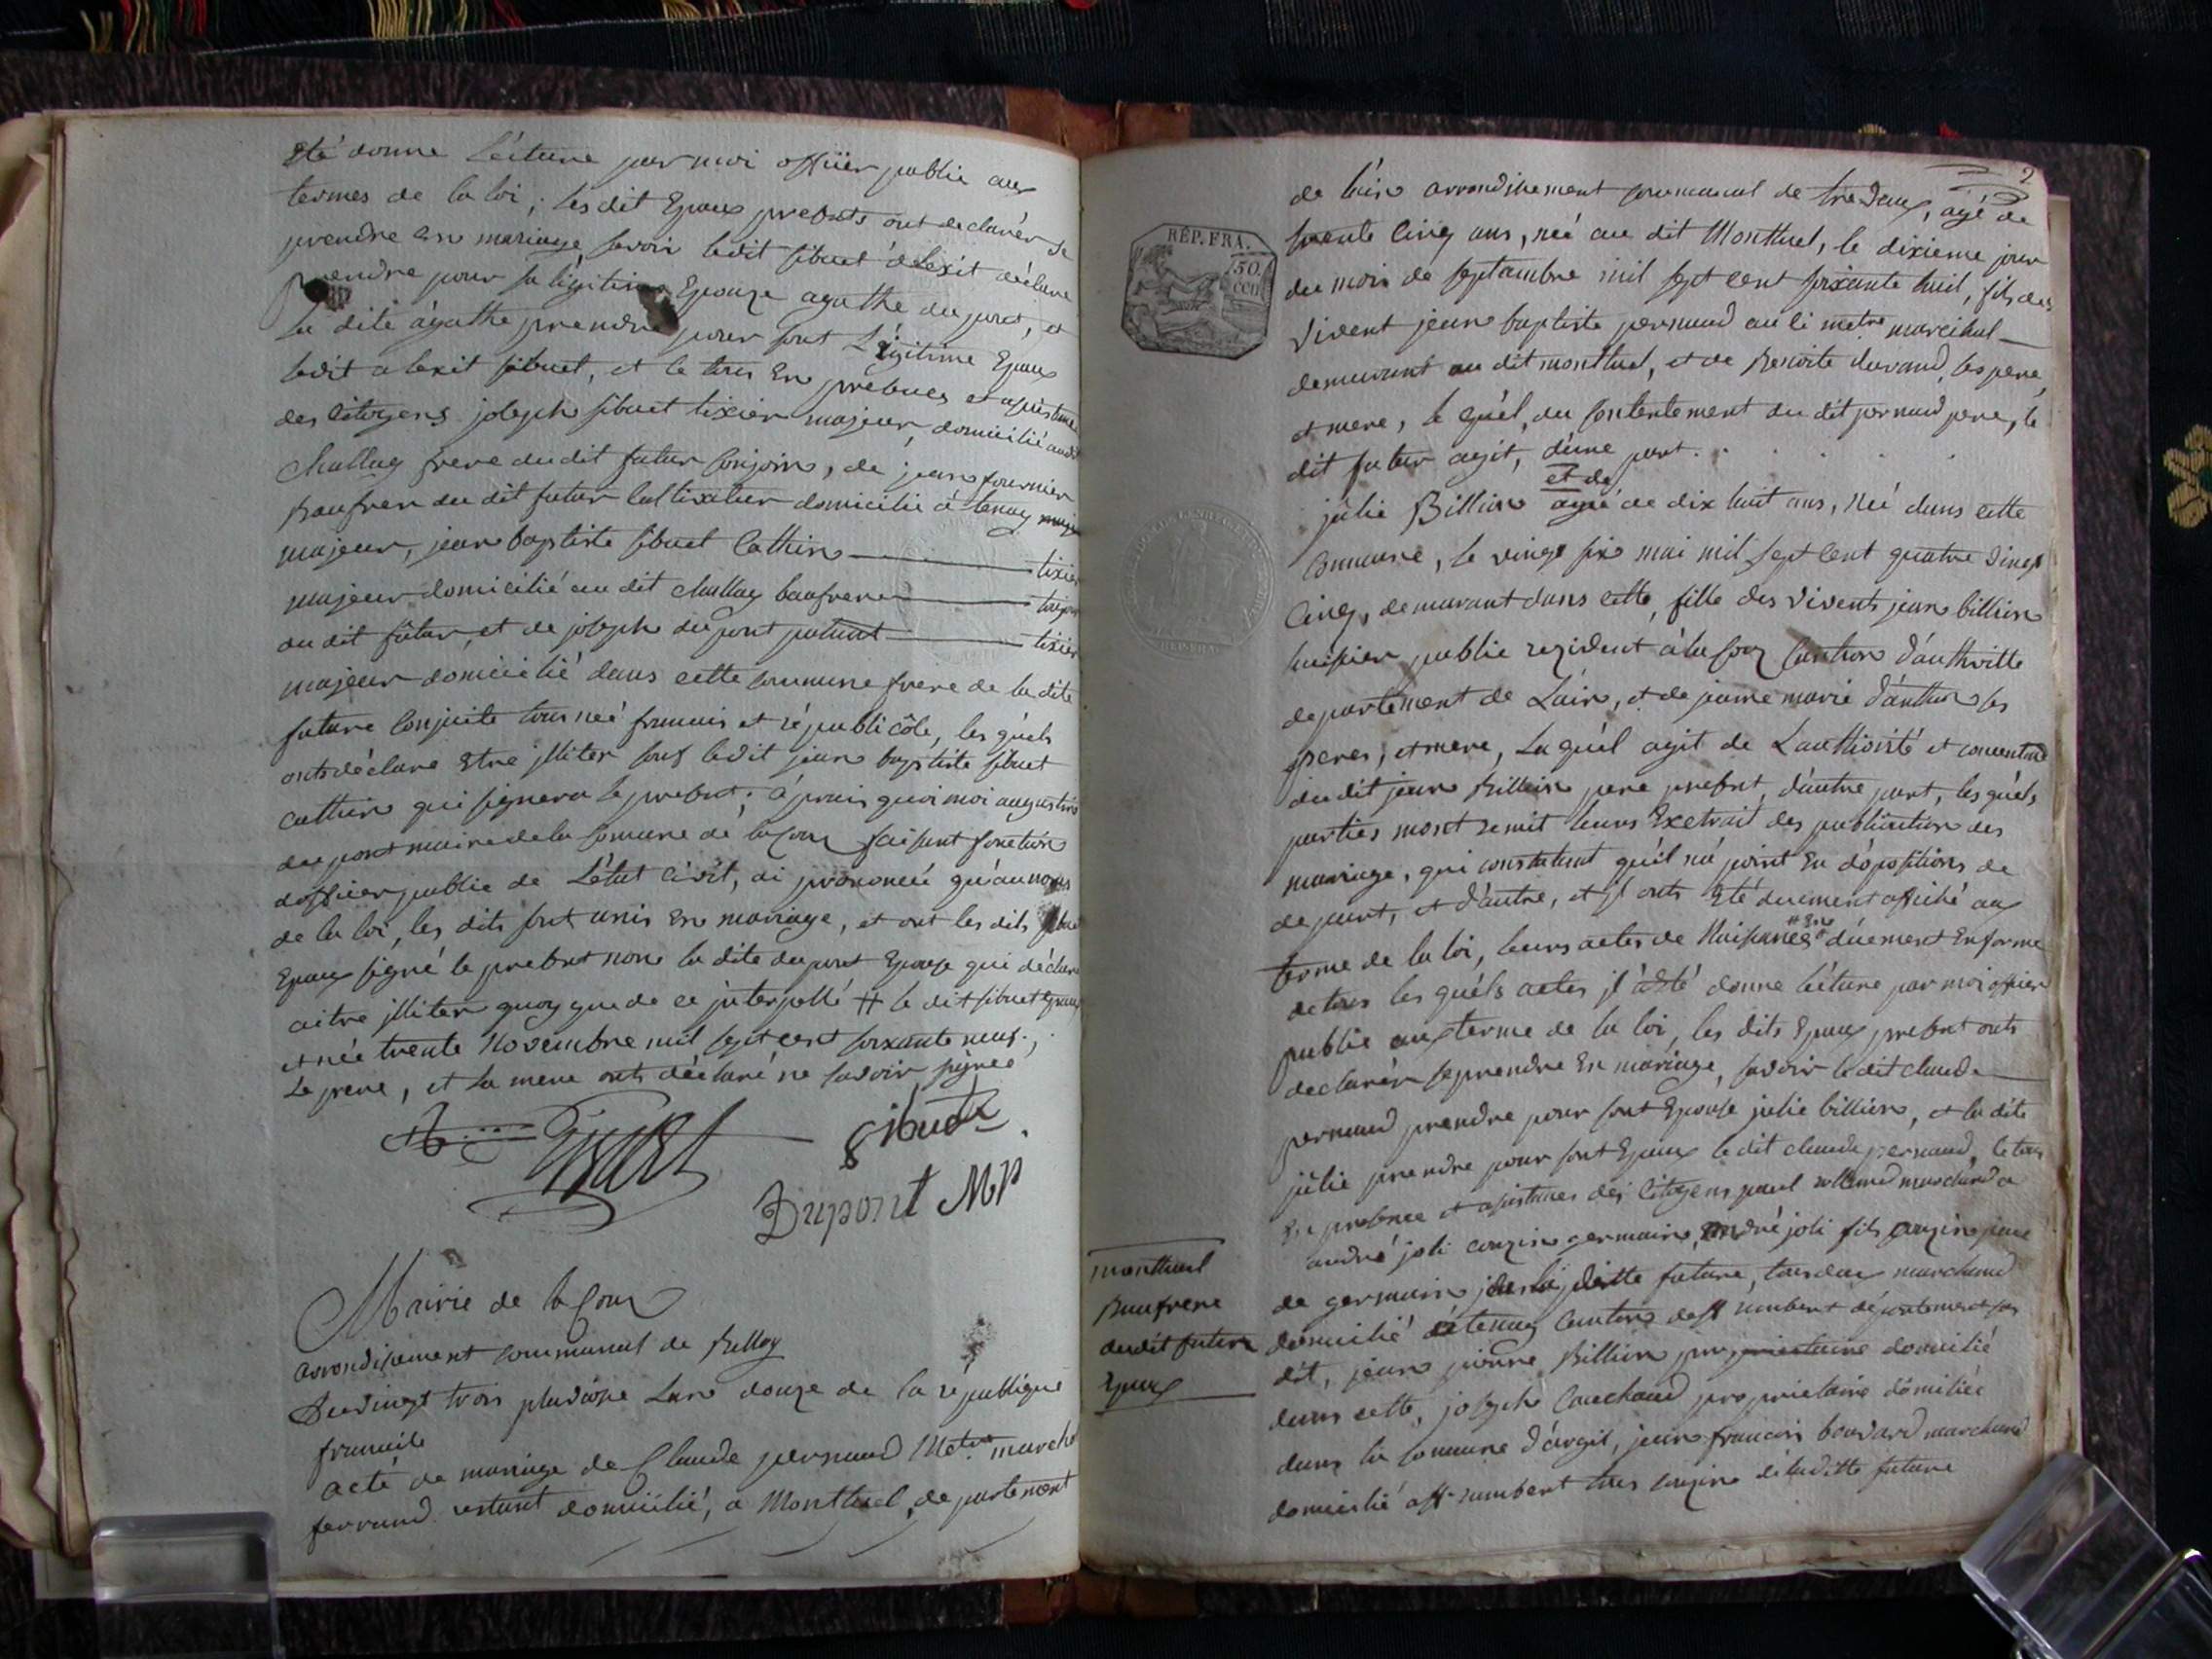 Eté donne Leiture par moi offiier public aux
termes de la loi; les dit Epoux presents ont declarér se
prendre en mariage savoir ledit sibuet alexit déclare
prendre pour sa ligitime Epouze agathe du pont, et
La dite agathe prendre pour sont Légitime Epoux
ledit alexit sibuet, et le tous En presences et assistance
des Citoyens joseph sibuet tixier majeur, domicilié audit
challey frere du dit futur Conjoins, de jean fournier
Baufrere du dit futur Cultivateur domicilié à tenay
majeur, jean baptiste sibuet Cathin tixier
majeur domicilié au dit challey baufrere toujour
du dit fûtur, et de joseph du pont tixier
majeur domicilié dans cette commune frere de la dite
future Conjointe tous neé francais et républicôle, les quels
onts déclare Etre illiter sauf ledit jean baptiste sibuet
Cathin qui signera le present; à prais quoi moi augustin
du pont maire de la Comune de la Coux faisant fonction
doffiier public de L'état Civit, ai prononcé qu'au noms
de la loi, les dits sont unis En mariage, et ont les dits
Epoux signé le present non la dite du pont Epouse qui déclare
aitre illiter quoy que de ce interpellé # le dit sibuet Epoux
et née trente Novembre mil sept cent soixante neuf.
Le pere, et La mere onts déclaré ne savoir signee
Sibuet
Dupont MP
Mairie de la Coux
arrondissement communal de Belley
Du vingt trois pluviose Lan douze de la republique
francaise
acte de mariage de Claude pernaud Metre marchal
ferrand restant domicilié, a Montluel, departement
2
RÉP. FRA.
50. cen
de lain arrondissement communal de tredoux, agé de
trente Cinq ans, né au dit Montluel, le dixieme jour
du mois de septambre mil sept cent soixante huit, fils des
vivent jean baptiste pernaud au si metre marcihal
demurant au dit montluel, et de Benoite durand, les pere,
et mere, le quél, du Contentement du dit pernaud pere, le
dit futur agit, d'une part.
et de
julie Billion agée de dix huit ans, Née dans cette
Commune, le vingt six mai mil sept Cent quatre vingt
Cinq, demurant dans cette, fille des vivents jean billion
huissier public rezident à la Coux Canthon d'authville
departement de Lain, et de janne marie d'anthon ses
peres, et mere, La quél agit de Lauthorité et consentement
du dit jean Billion pere present, d'autre part, les quéls
parties mont remit leurs Exctrait des publication des
mariage, qui constatent qu'il né point Eu dópositions de
de part, et d'autre, et il onts Eté duement affiché aux
terme de la loi, leurs actes de Naisances # Ene dúement En forme
de tous les quéls actes il à Eté donne Leiture par moi offiier
public aux terme de la loi, les dits Epoux present onts
declarér se prendre En mariage, savoir le dit claude
pernaud prendre pour sont Epouse julie billion, et la dite
julie prendre pour sont Epoux le dit claude pernaud, le tous
En presence et assistances dés Citoyens paul rolland marchand a
montluel
Baufrere
du dit futur
Epoux
andré joli couzin germain, andré joli fils couzin
de germain de la ditte future, tous deux marchand
domicilié á tenay Canton de st rambert département sus
dit, jean pierre Billion propriétaire domicilié
dans cette, joseph Cauchand proprietaire domicilié
dans la Comune d'argit, jean francois bonvard marchand
domicilié a st rambert tous couzin de la ditte future